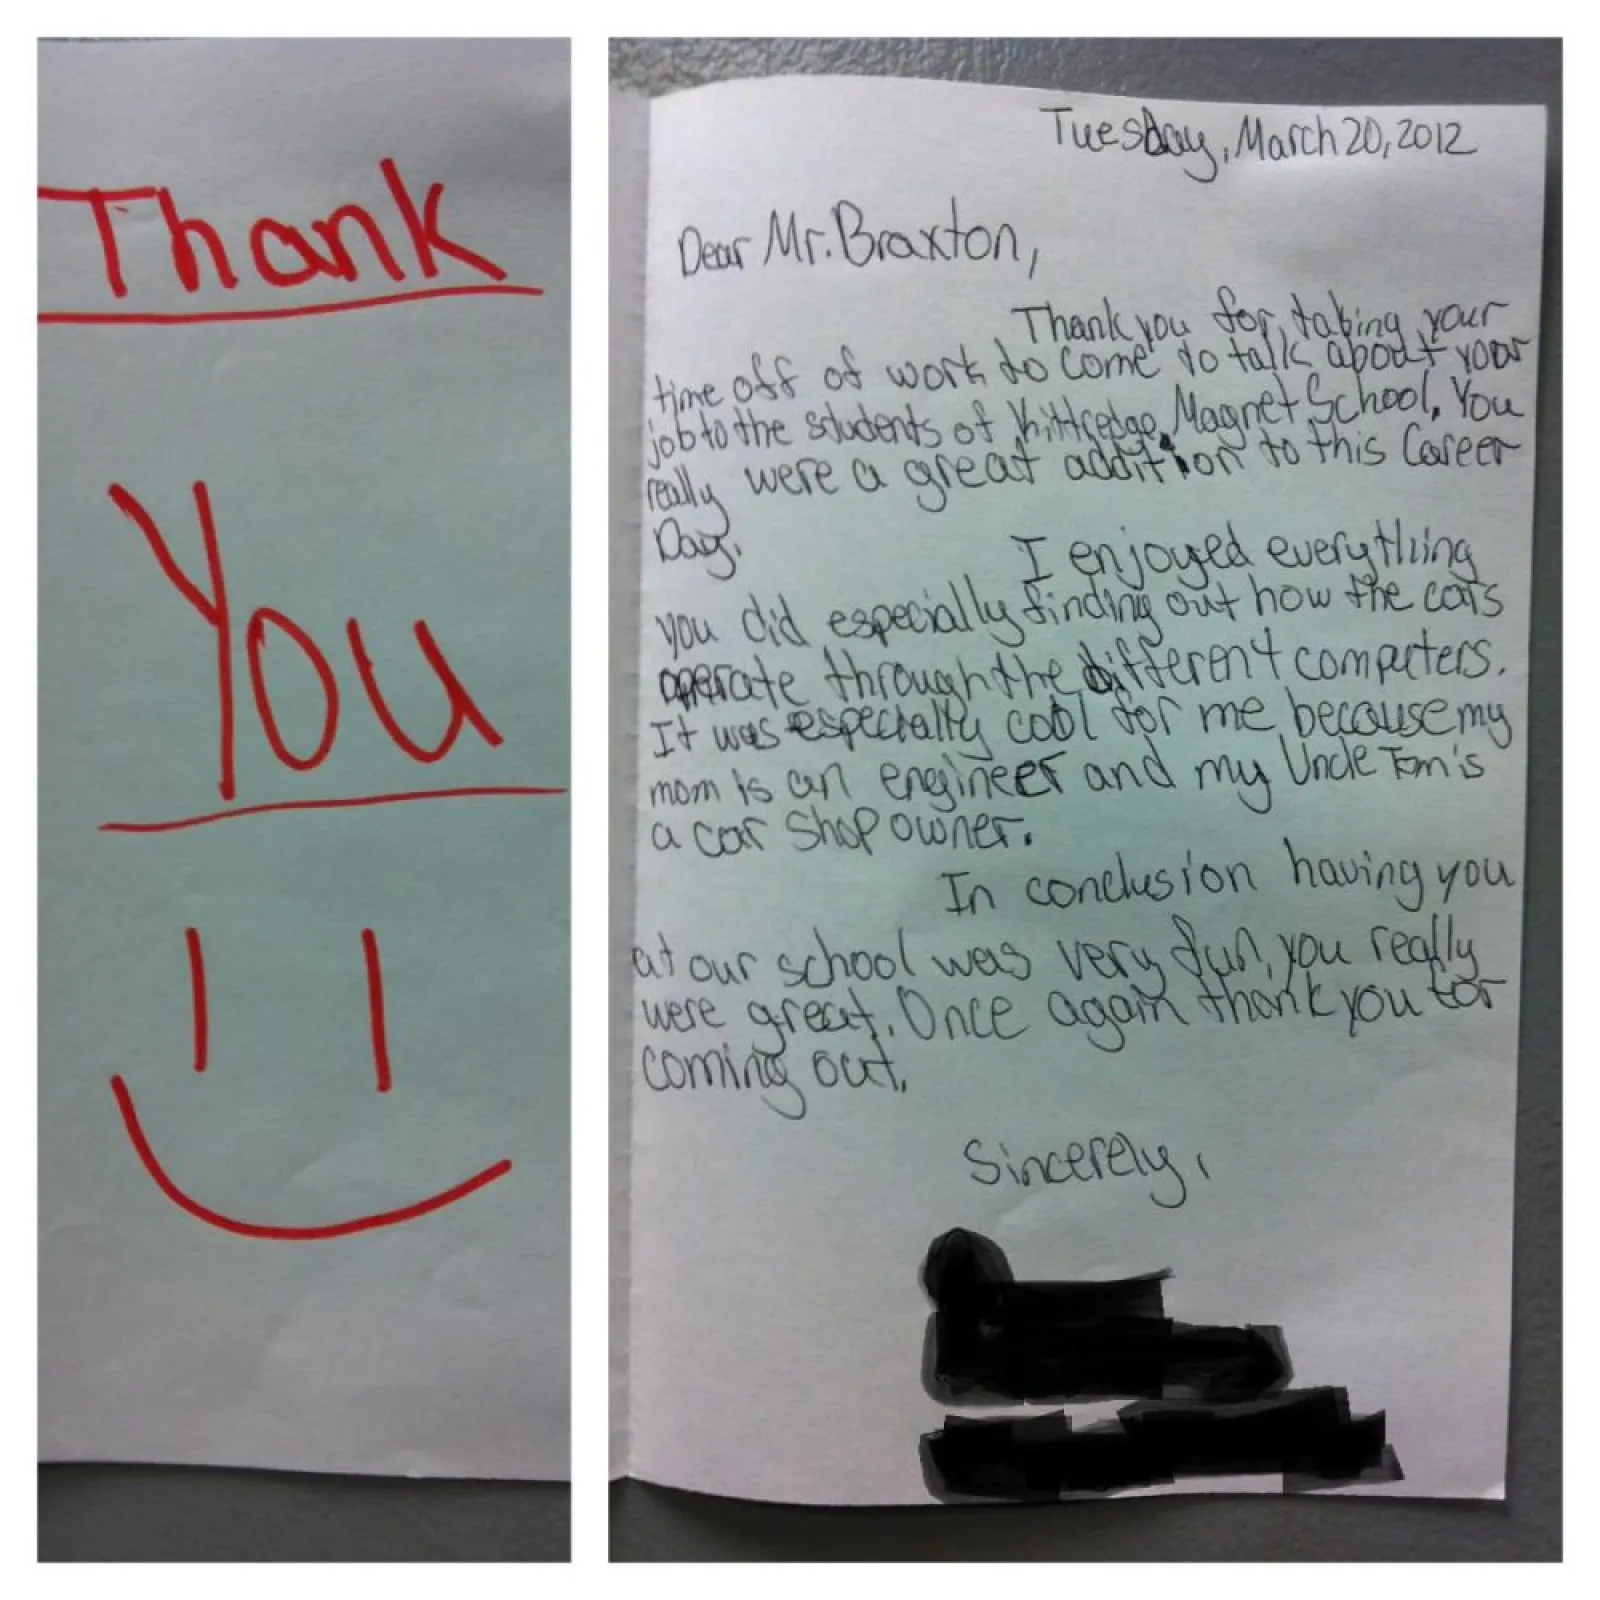 Thank
You
Tuesday, March 20, 2012
Dear Mr. Braxton,
Thank you for taking your
time off of work to come to talk about your
job to the students of Kittredge Magnet School. You
really were a great addition to this Career
Day.
I enjoyed everything
you did especially finding out how the cars
operate through the different computers.
It was especially cool for me because my
mom is an engineer and my Uncle Tom is
a car shop owner.
In conclusion having you
at our school was very fun, you really
were great. Once again thank you for
coming out.
Sincerely,